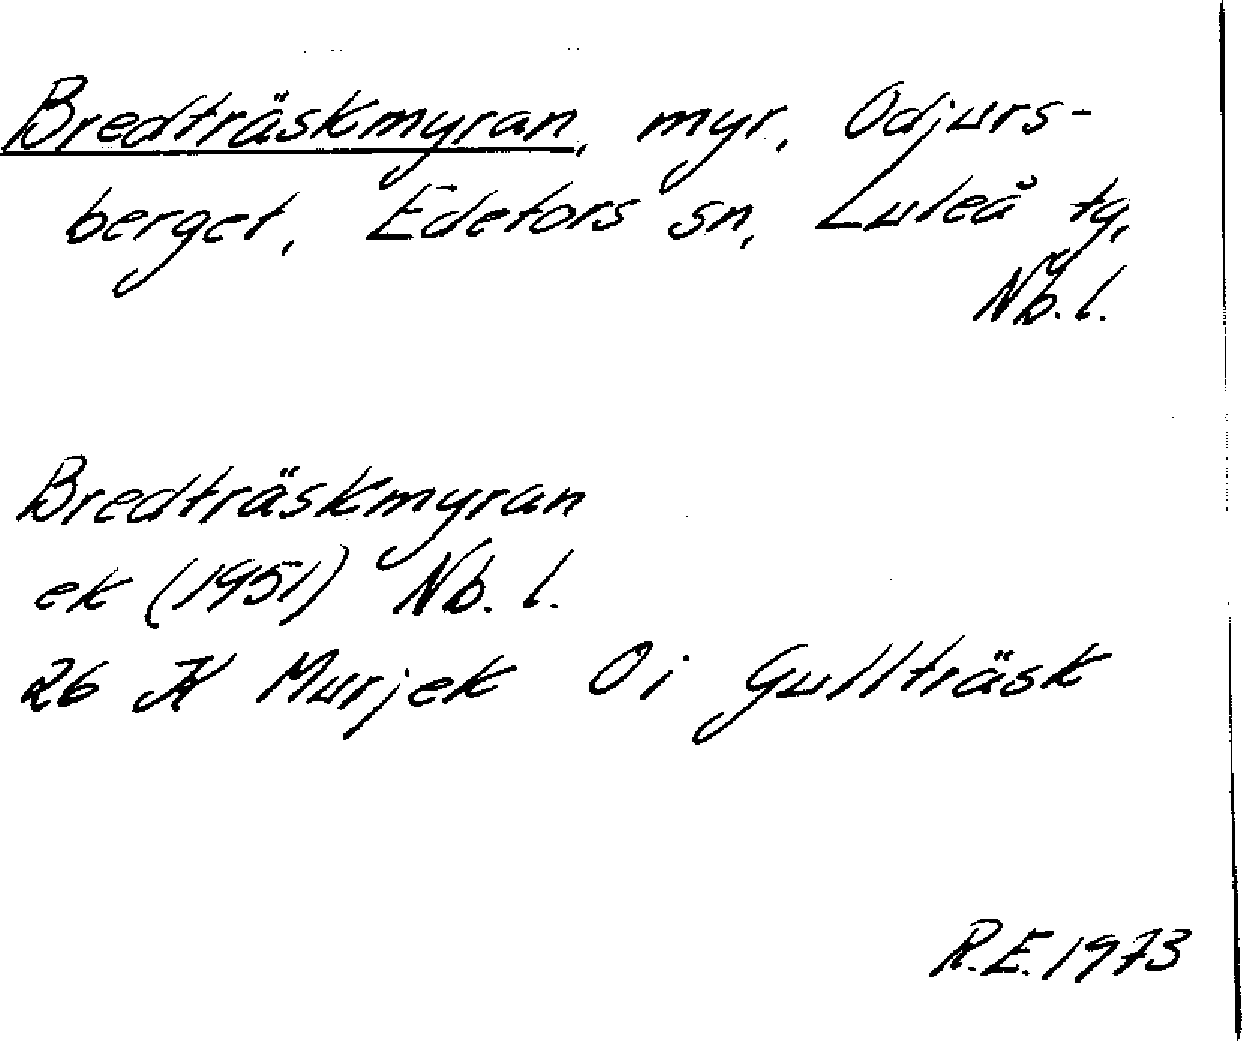 Bredträskmyran, myr, Odjurs-
berget, Edefors sn, Luleå tg,
Nb. l.
Bredträskmyran
ek (1951) Nb. l.
26 K Murjek Oi Gullträsk
R.E. 1973